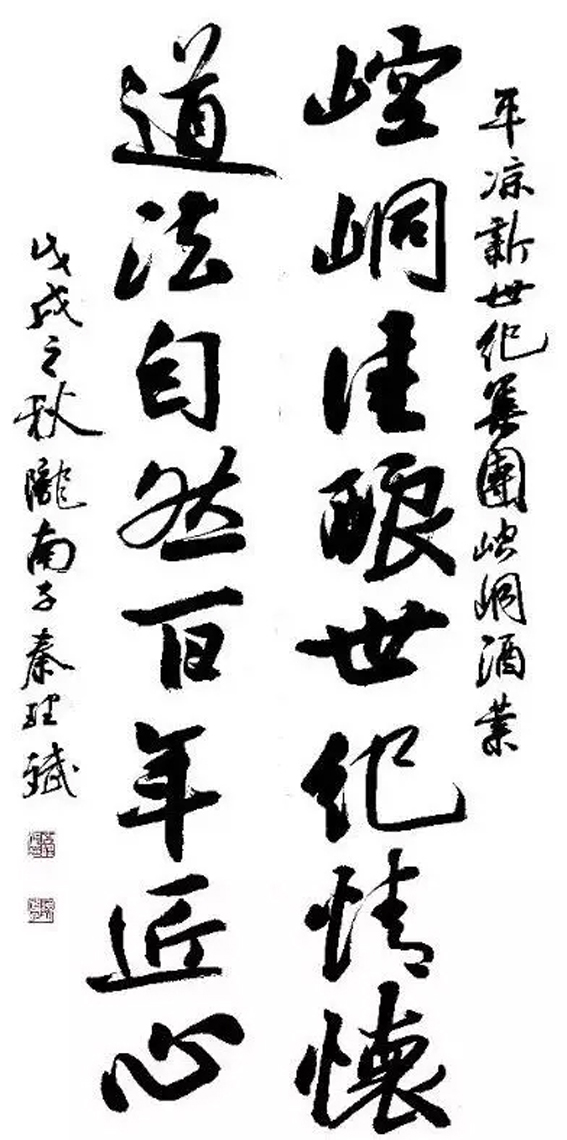 平凉新世紀集團崆峒酒業
崆峒佳酿世紀情懷
道法自然百年匠心
戊戌之秋隴南子秦理斌